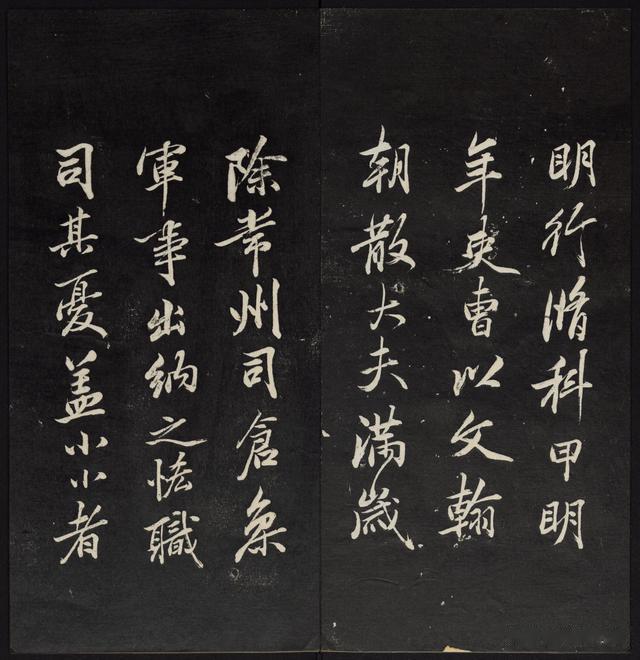 明行脩科甲明
年吏曹以文翰
朝散大夫滿歲
除常州司倉參
軍事出納之恡職
司其憂盖小小者